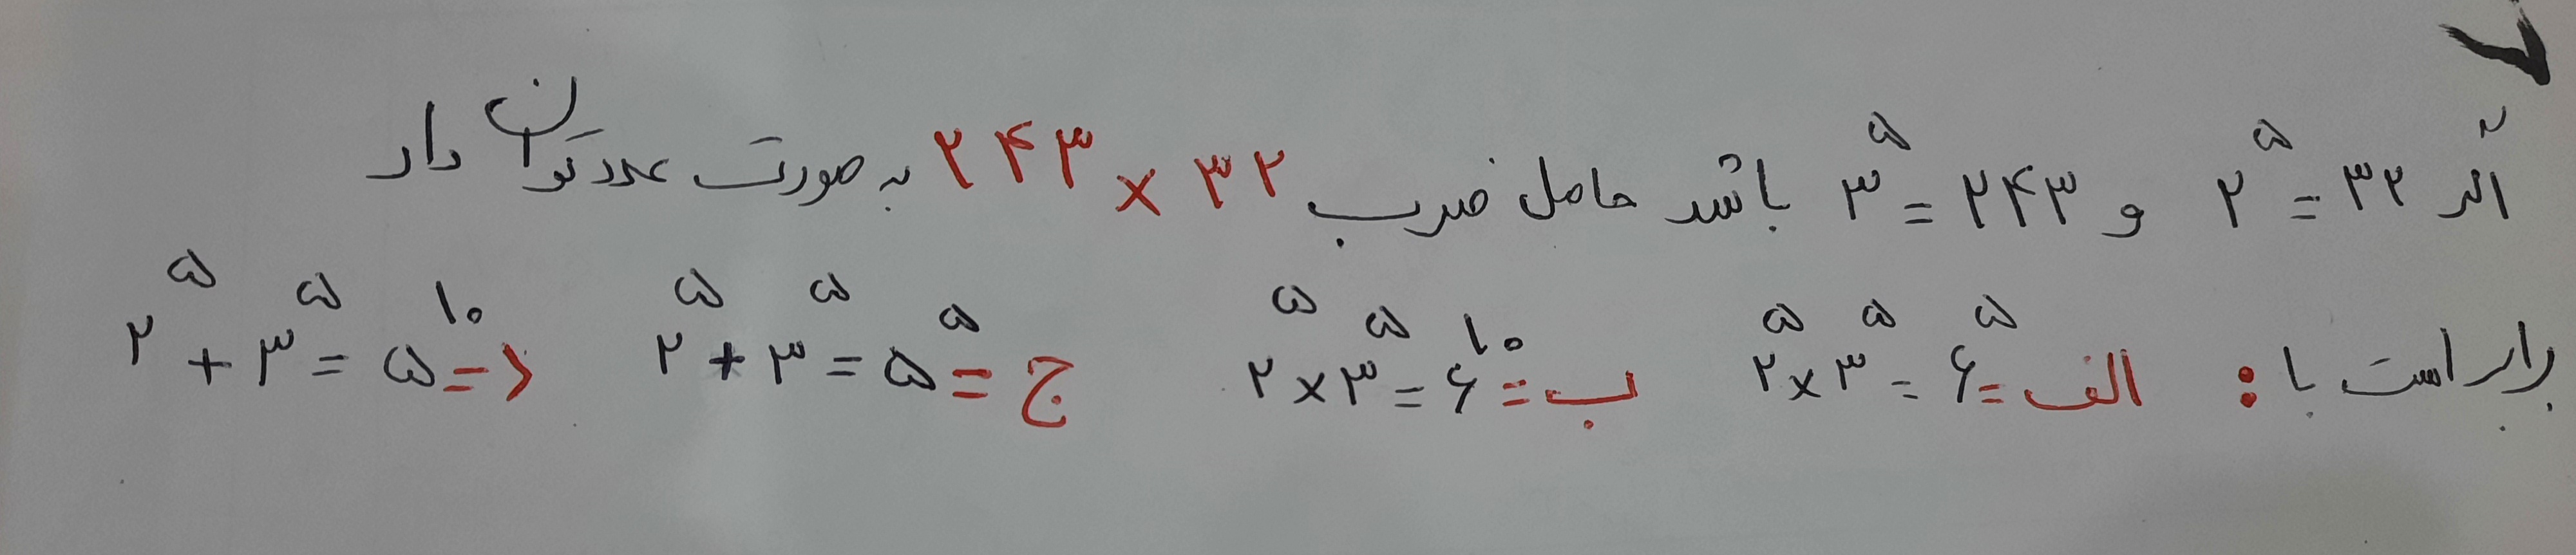 ۷
اگر ۲^۵ = ۳۲ و ۳^۵ = ۲۴۳ باشد حاصل ضرب ۲۴۳ × ۳۲ به صورت عدد توان دار
برابر است با : الف = ۲^۵ × ۳^۵ = ۶^۵ ب = ۲^۵ × ۳^۵ = ۶^۱۰ ج = ۲^۵ + ۳^۵ = ۵^۵ د = ۲^۵ + ۳^۵ = ۵^۱۰